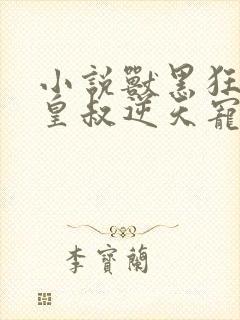 小説獸黑狂
皇叔逆天寵
李寶蘭